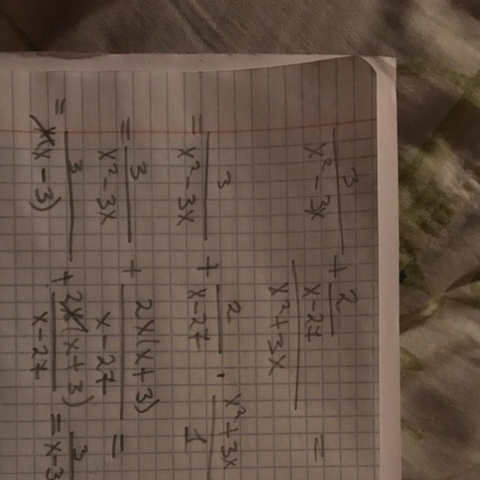 3/(x² - 3x) + (2/(x-27))/(x² + 3x) =
= 3/(x² - 3x) + 2/(x-27) · (x² + 3x)/1
= 3/(x² - 3x) + 2x(x+3)/(x-27) =
= 3/(x(x-3)) + 2x(x+3)/(x-27) = 3/(x-3